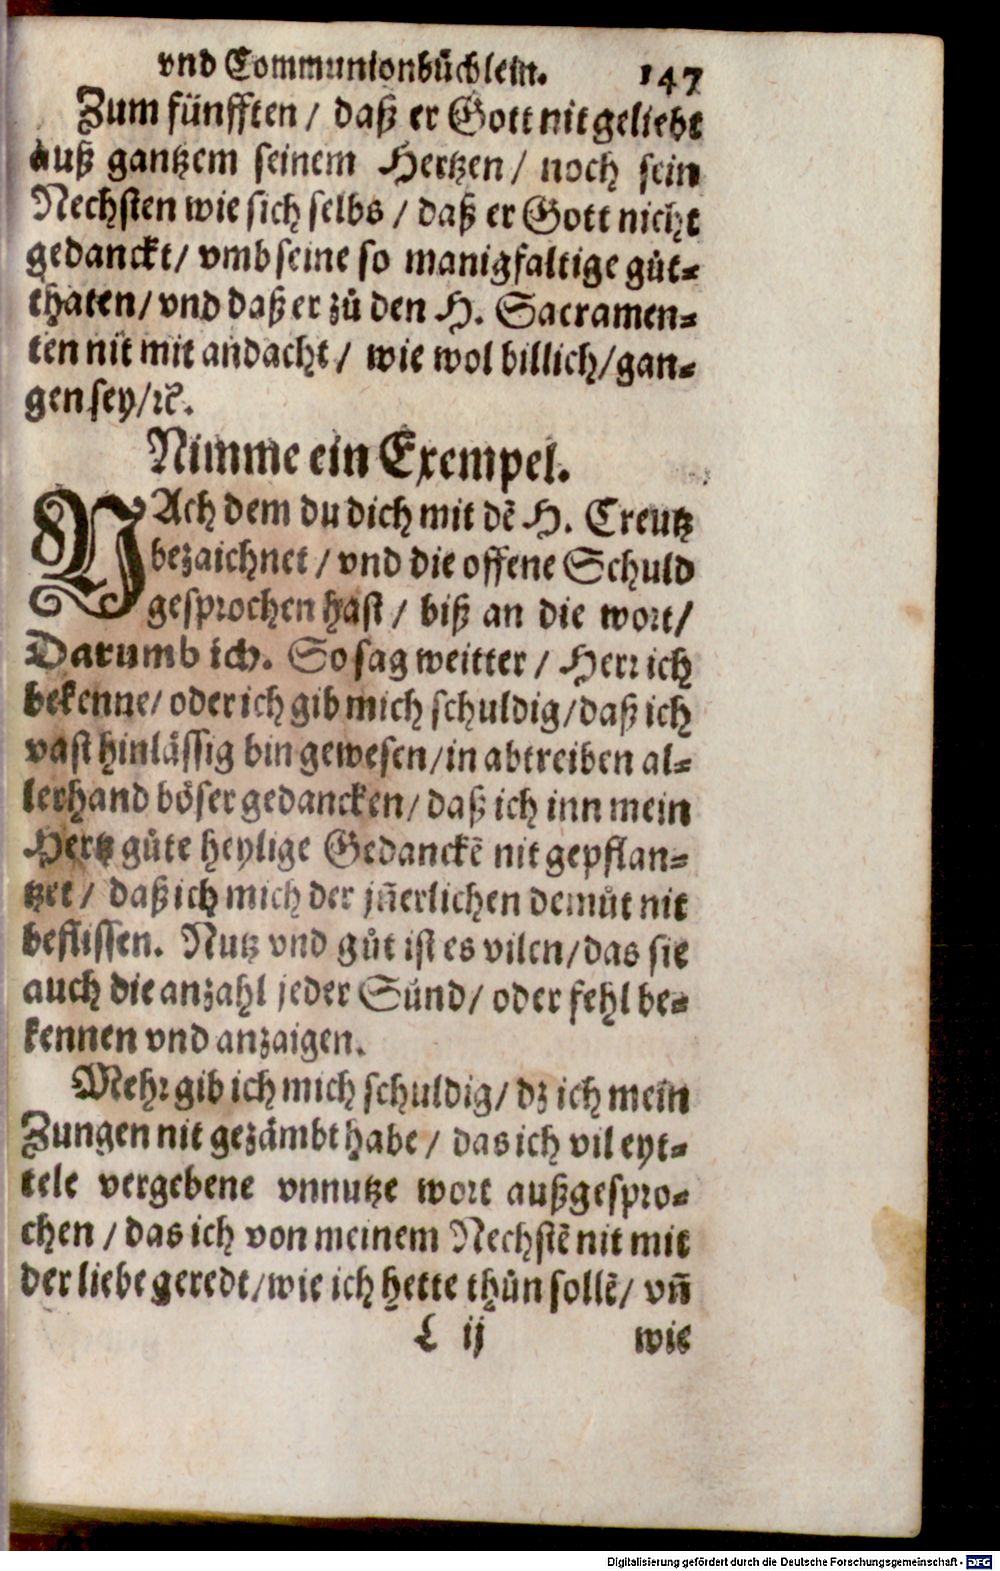 vnd Communionbůchlein. 147
Zum fünfften / daß er Gott nit geliebt
auß gantzem seinem Hertzen / noch sein
Nechsten wie sich selbs / daß er Gott nicht
gedanckt / vmb seine so manigfaltige gůt⸗
thaten / vnd daß er zů den H. Sacramen⸗
ten nit mit andacht / wie wol billich / gan⸗
gen sey / ꝛc̃.
Nimme ein Exempel.
NAch dem du dich mit dẽ H. Creutz
bezaichnet / vnd die offene Schuld
gesprochen hast / biß an die wort /
Darumb ich. So sag weitter / Herr ich
bekenne / oder ich gib mich schuldig / daß ich
vast hinlässig bin gewesen / in abtreiben al⸗
lerhand böser gedancken / daß ich inn mein
Hertz gůte heylige Gedanckẽ nit gepflan⸗
tzet / daß ich mich der jñerlichen demůt nit
beflissen. Nutz vnd gůt ist es vilen / das sie
auch die anzahl jeder Sünd / oder fehl be⸗
kennen vnd anzaigen.
Mehr gib ich mich schuldig / dz ich mein
Zungen nit gezämbt habe / das ich vil eyt⸗
tele vergebene vnnutze wort außgespro⸗
chen / das ich von meinem Nechstẽ nit mit
der liebe geredt / wie ich hette thůn sollẽ / vñ
L ij wie
Digitalisierung gefördert durch die Deutsche Forschungsgemeinschaft - DFG